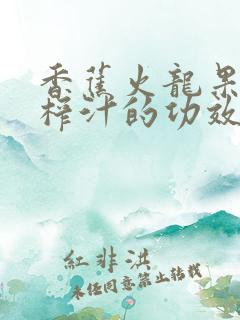 香蕉火龍果
榨汁的功效
紅非洪
未經同意禁止轉載